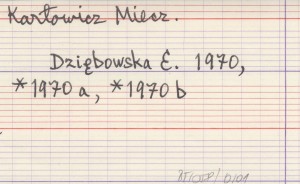 Karłowicz Miecz.
Dziębowska E. 1970,
*1970 a, *1970 b